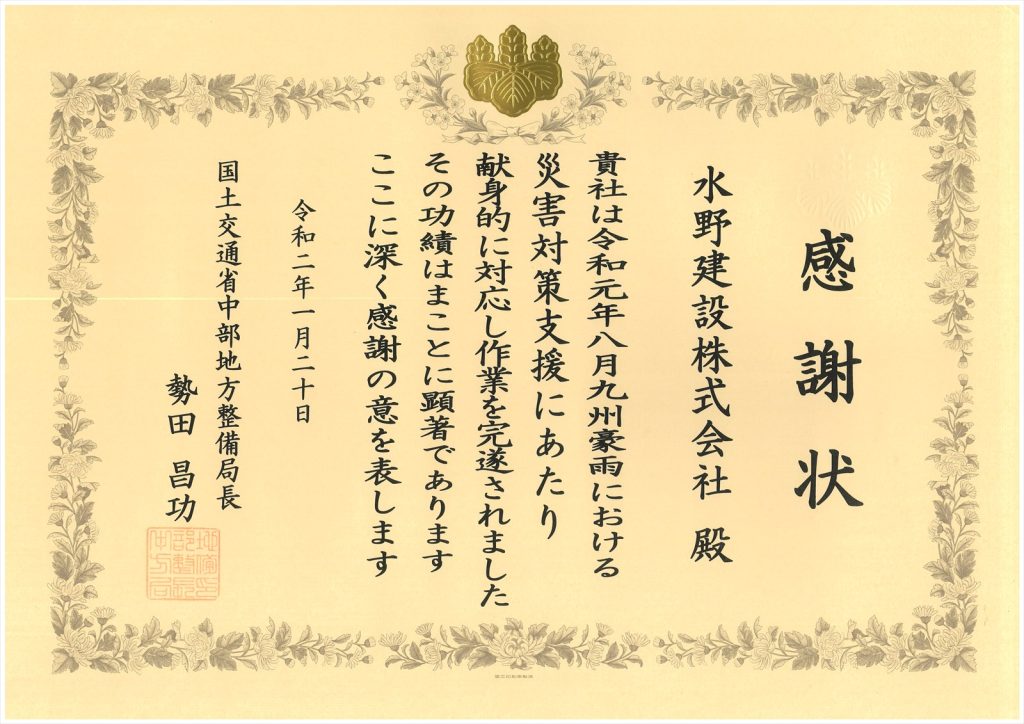 感謝状
水野建設株式会社 殿
貴社は令和元年八月九州豪雨における
災害対策支援にあたり
献身的に対応し作業を完遂されました
その功績はまことに顕著であります
ここに深く感謝の意を表します
令和二年一月二十日
国土交通省中部地方整備局長
勢田 昌功